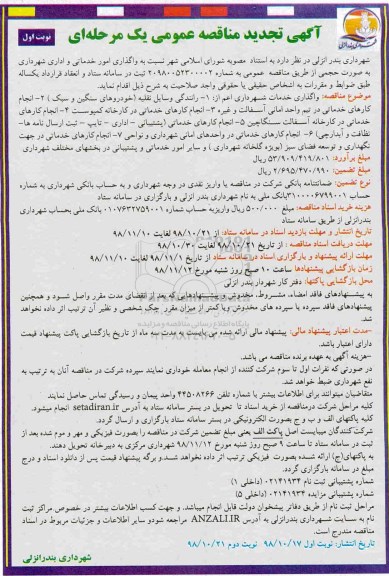 آگهی تجدید مناقصه عمومی یک مرحله‌ای
نوبت اول
شهرداری بندر انزلی در نظر دارد به استناد مصوبه شورای اسلامی شهر نسبت به واگذاری امور خدماتی و اداری شهرداری
به صورت حجمی از طریق مناقصه عمومی به شماره ۲۰۹۸۰۰۵۲۳۰۰۰۰۲ ثبت در سامانه ستاد و انعقاد قرارداد یکساله
طبق ضوابط و مقررات به اشخاص حقیقی یا حقوقی واجد صلاحیت به شرح ذیل اقدام نماید.
موضوع مناقصه: واگذاری خدمات شهرداری اعم از: ۱- رانندگی وسایل نقلیه (خودروهای سنگین و سبک) ۲- انجام
کارهای خدماتی در تیم واحد امانی آسفالت و غیر ۳- انجام کارهای خدماتی در کارخانه کمپوست ۴- انجام کارهای
خدماتی در کارخانه آسفالت سنگاچین ۵- انجام کارهای خدماتی (پشتیبانی - اداری - تایپ - ثبت ارسال نامه ها-
نظافت و آبدارچی) ۶- انجام کارهای خدماتی در واحدهای امانی شهرداری و نواحی ۷- انجام کارهای خدماتی در جهت
نگهداری و توسعه فضای سبز (بویژه گلخانه شهرداری) و سایر امور خدماتی و پشتیبانی در بخشهای مختلف شهرداری
مبلغ برآورد: ۵۳/۹۰۹/۴۱۹/۸۰۱ ریال
مبلغ تضمین: ۲/۶۹۵/۴۷۰/۹۹۰ ریال
نوع تضمین: ضمانتنامه بانکی شرکت در مناقصه یا واریز نقدی در وجه شهرداری و به حساب بانکی شهرداری به شماره
حساب ۳۱۰۰۰۰۶۷۹۹۰۰۱ بانک ملی به نام شهرداری بندر انزلی و بارگزاری در سامانه ستاد
هزینه خرید اسناد مناقصه: مبلغ ۵۰۰/۰۰۰ ریال واریز به حساب شماره ۰۱۰۷۶۳۲۷۵۹۰۰۱ بانک ملی بحساب شهرداری
بندرانزلی از طریق سامانه ستاد
تاریخ انتشار و مهلت بازدید اسناد در سامانه ستاد: از ۹۸/۱۰/۲۱ لغایت ۹۸/۱۱/۱۰
مهلت دریافت اسناد مناقصه : از تاریخ ۹۸/۱۰/۲۱ لغایت ۹۸/۱۰/۳۰
مهلت ارائه پیشنهاد و بارگزاری اسناد در سامانه ستاد: از تاریخ ۹۸/۱۱/۱ لغایت ۹۸/۱۱/۱۰
زمان بازگشایی پیشنهادها ساعت ۱۰ صبح روز شنبه مورخ ۹۸/۱۱/۱۲
محل بازگشایی پاکتها: دفتر کار شهردار بندر انزلی
به پیشنهادهای فاقد امضاء، مشروط، مخدوش و پیشنهادهایی که بعد از انقضای مدت مقرر واصل شود و همچنین
پیشنهادهای فاقد سپرده یا سپرده های مخدوش و یا کمتر از میزان مقرر چک شخصی و نظیر آن ترتیب اثر داده نخواهد
شد.
-مدت اعتبار پیشنهاد مالی: پیشنهاد مالی ارائه شده می بایست به مدت سه ماه از تاریخ بازگشایی پاکت پیشنهاد قیمت
دارای اعتبار باشد.
-هزینه آگهی به عهده برنده مناقصه می باشد.
در صورتی که نفرات اول تا سوم شرکت کننده از انجام معامله خودداری نمایند سپرده شرکت در مناقصه آنان به ترتیب به
نفع شهرداری ضبط خواهد شد.
متقاضیان میتوانند برای اطلاعات بیشتر با شماره تلفن ۴۴۵۰۸۲۶۶ واحد پیمان و رسیدگی تماس حاصل نمایند
کلیه مراحل شرکت درمناقصه از خرید اسناد تا تحویل در بستر سامانه ستاد به آدرس setadiran.ir انجام میشود.
کلیه پاکتهای الف و ب و ج بصورت الکترونیکی در بستر سامانه ستاد بارگزاری و ارسال گردد.
شرکت کنندگان میبایست اصل پاکت الف یعنی مبلغ تضمین شرکت در مناقصه را بصورت فیزیکی و مهر و موم شده بعد از
ثبت در سامانه ستاد تا ساعت ۹ صبح روز شنبه مورخ ۹۸/۱۱/۱۲ شهرداری مرکزی به دبیرخانه تحویل دهند.
به پاکتهای(ج) ارائه شده بصورت فیزیکی ترتیب اثر داده نخواهد شد و برگه پیشنهاد قیمت پس از دانلود اسناد و درج
مبلغ در سامانه بارگزاری گردد.
شماره پشتیبانی ثبت نام ۰۲۱۴۱۹۳۴ (داخلی ۱)
شماره پشتیبانی مزایده ۰۲۱۴۱۹۳۴ (داخلی ۵)
مراحل ثبت نام از طریق دفاتر پیشخوان دولت قابل انجام میباشد. و جهت کسب اطلاعات بیشتر در خصوص مراکز ثبت
نام به سایت شهرداری بندرانزلی به آدرس ANZALI.IR مراجعه شودو سایر اطلاعات و جزئیات مربوط در اسناد
مناقصه مندرج است.
تاریخ انتشار: نوبت اول ۹۸/۱۰/۱۷ نوبت دوم ۹۸/۱۰/۲۱
شهرداری بندرانزلی